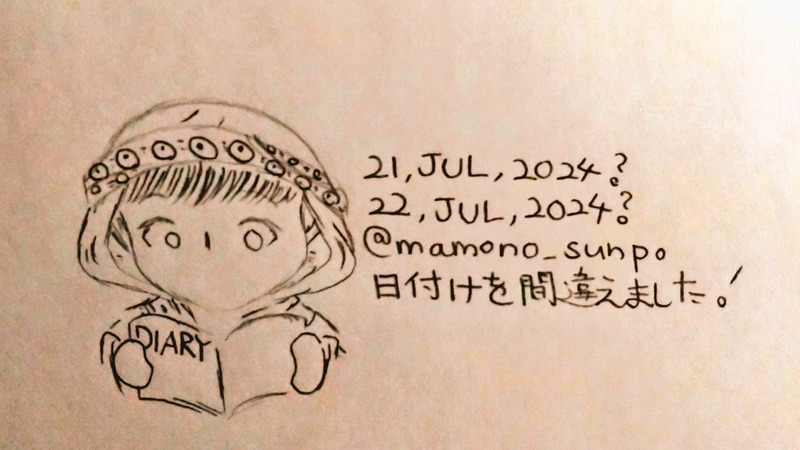 DIARY
21,JUL,2024?
22,JUL,2024?
@mamono_sunpo
日付けを間違えました。!